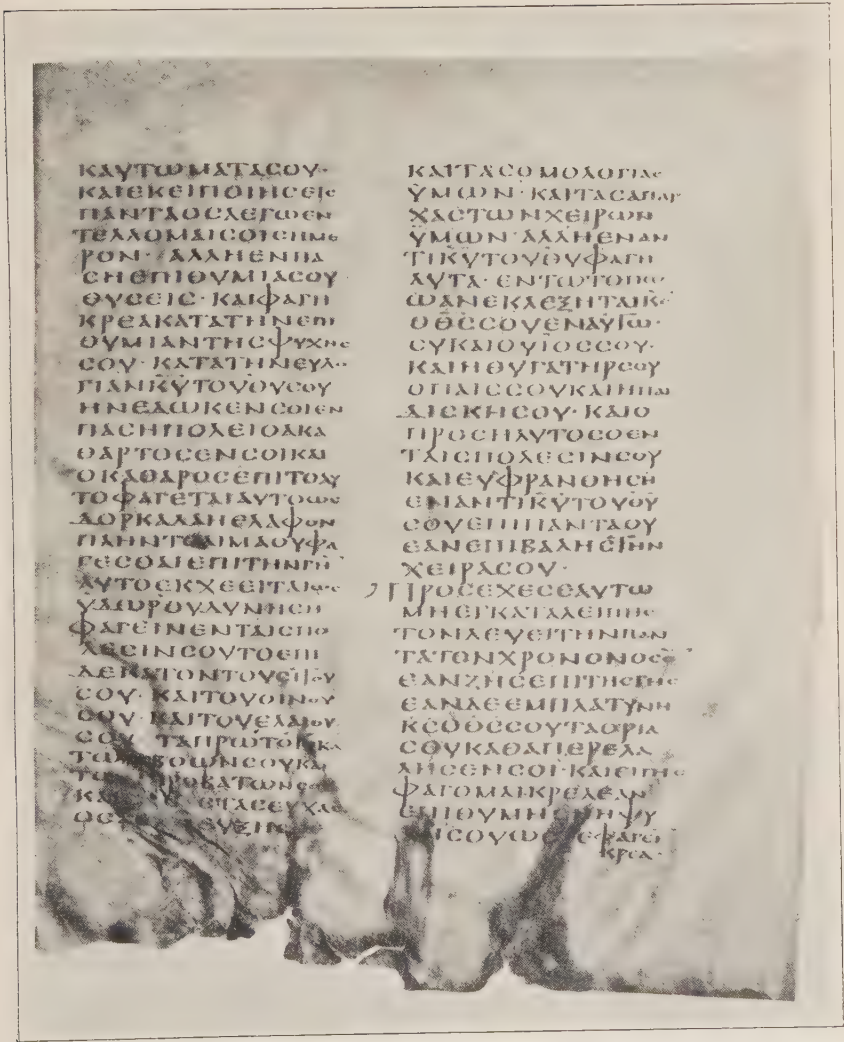 ΚΑΥΤΩΜΑΤΑϹΟΥ·
ΚΑΙΕΚΕΙΠΟΙΗϹΕΙϹ
ΠΑΝΤΑΟϹΛΕΓΩΕΝ
ΤΕΛΛΟΜΑΙϹΟΙϹΗΜΕ
ΡΟΝ· ΑΛΛΗΕΝΠΑ
ϹΗΕΠΙΘΥΜΙΑϹΟΥ
ΘΥϹΕΙϹ· ΚΑΙΦΑΓΗ
ΚΡΕΑΚΑΤΑΤΗΝΕΠΙ
ΘΥΜΙΑΝΤΗϹΨΥΧΗϹ
ϹΟΥ· ΚΑΤΑΤΗΝΕΥΛΟ
ΓΙΑΝΚ̅Υ̅ΤΟΥΘ̅Υ̅ϹΟΥ
ΗΝΕΔΩΚΕΝϹΟΙΕΝ
ΠΑϹΗΠΟΛΕΙΟΑΚΑ
ΘΑΡΤΟϹΕΝϹΟΙΚΑΙ
ΟΚΑΘΑΡΟϹΕΠΙΤΟΑΥ
ΤΟΦΑΓΕΤΑΙΑΥΤΟΩϹ
ΔΟΡΚΑΔΑΗΕΛΑΦΟΝ
ΠΛΗΝΤΟΑΙΜΑΟΥΦΑ
ΓΕϹΘΑΙΕΠΙΤΗΝΓΗ̅
ΑΥΤΟΕΚΧΕΕΙΤΑΙΩϹ
ΥΔΩΡΟΥΔΥΝΗϹΗ
ΦΑΓΕΙΝΕΝΤΑΙϹΠΟ
ΛΕϹΙΝϹΟΥΤΟΕΠΙ
ΔΕΚΑΤΟΝΤΟΥϹΙΤΟΥ
ϹΟΥ· ΚΑΙΤΟΥΟΙΝΟΥ
ϹΟΥ· ΚΑΙΤΟΥΕΛΑΙΟΥ
ϹΟΥ ΤΑΠΡΩΤΟΤΟΚΑ
ΤΩΝΒΟΩΝϹΟΥΚΑΙ
ΤΩΝΠΡΟΒΑΤΩΝϹΟΥ
ΚΑΙ ΕΤΑϹΕΥΧΑϹ
ΟϹ ΕΥΞΗϹ
ΚΑΙΤΑϹΟΜΟΛΟΓΙΑϹ
Ϋ́ΜΩΝ· ΚΑΙΤΑϹΑΠΑΡ
ΧΑϹΤΩΝΧΕΙΡΩΝ
ΫΜΩΝ· ΑΛΛΗΕΝΑΝ
ΤΙΚ̅Υ̅ΤΟΥΘ̅Υ̅ΦΑΓΗ
ΑΥΤΑ· ΕΝΤΩΤΟΠΩ
ΩΑΝΕΚΛΕΞΗΤΑΙΚ̅Ϲ̅
ΟΘ̅Ϲ̅ϹΟΥΕΝΑΥΤΩ·
ϹΥΚΑΙΟΥΙΟϹϹΟΥ·
ΚΑΙΗΘΥΓΑΤΗΡϹΟΥ
ΟΠΑΙϹϹΟΥΚΑΙΗΠΑΙ
ΔΙϹΚΗϹΟΥ· ΚΑΙΟ
ΠΡΟϹΗΛΥΤΟϹΟΕΝ
ΤΑΙϹΠΟΛΕϹΙΝϹΟΥ
ΚΑΙΕΥΦΡΑΝΘΗϹΗ
ΕΝΑΝΤΙΚ̅Υ̅ΤΟΥΘ̅Υ̅
ϹΟΥΕΠΙΠΑΝΤΑΟΥ
ΕΑΝΕΠΙΒΑΛΗϹΤΗΝ
ΧΕΙΡΑϹΟΥ·
ΠΡΟϹΕΧΕϹΕΑΥΤΩ
ΜΗΕΓΚΑΤΑΛΕΙΠΗϹ
ΤΟΝΛΕΥΕΙΤΗΝΠΑΝ
ΤΑΤΟΝΧΡΟΝΟΝΟϹΟ̅
ΕΑΝΖΗϹΕΠΙΤΗϹΓΗϹ
ΕΑΝΔΕΕΜΠΛΑΤΥΝΗ
Κ̅Ϲ̅ΟΘ̅Ϲ̅ϹΟΥΤΑΟΡΙΑ
ϹΟΥΚΑΘΑΠΕΡΕΛΑ
ΛΗϹΕΝϹΟΙ· ΚΑΙΕΙΠΗϹ
ΦΑΓΟΜΑΙΚΡΕΑΕΑΝ
ΕΠΙΘΥΜΗϹΗΗΨΥ
ΗϹΟΥΩϹ ΕΦΑΓΕΙ
ΚΡΕΑ·